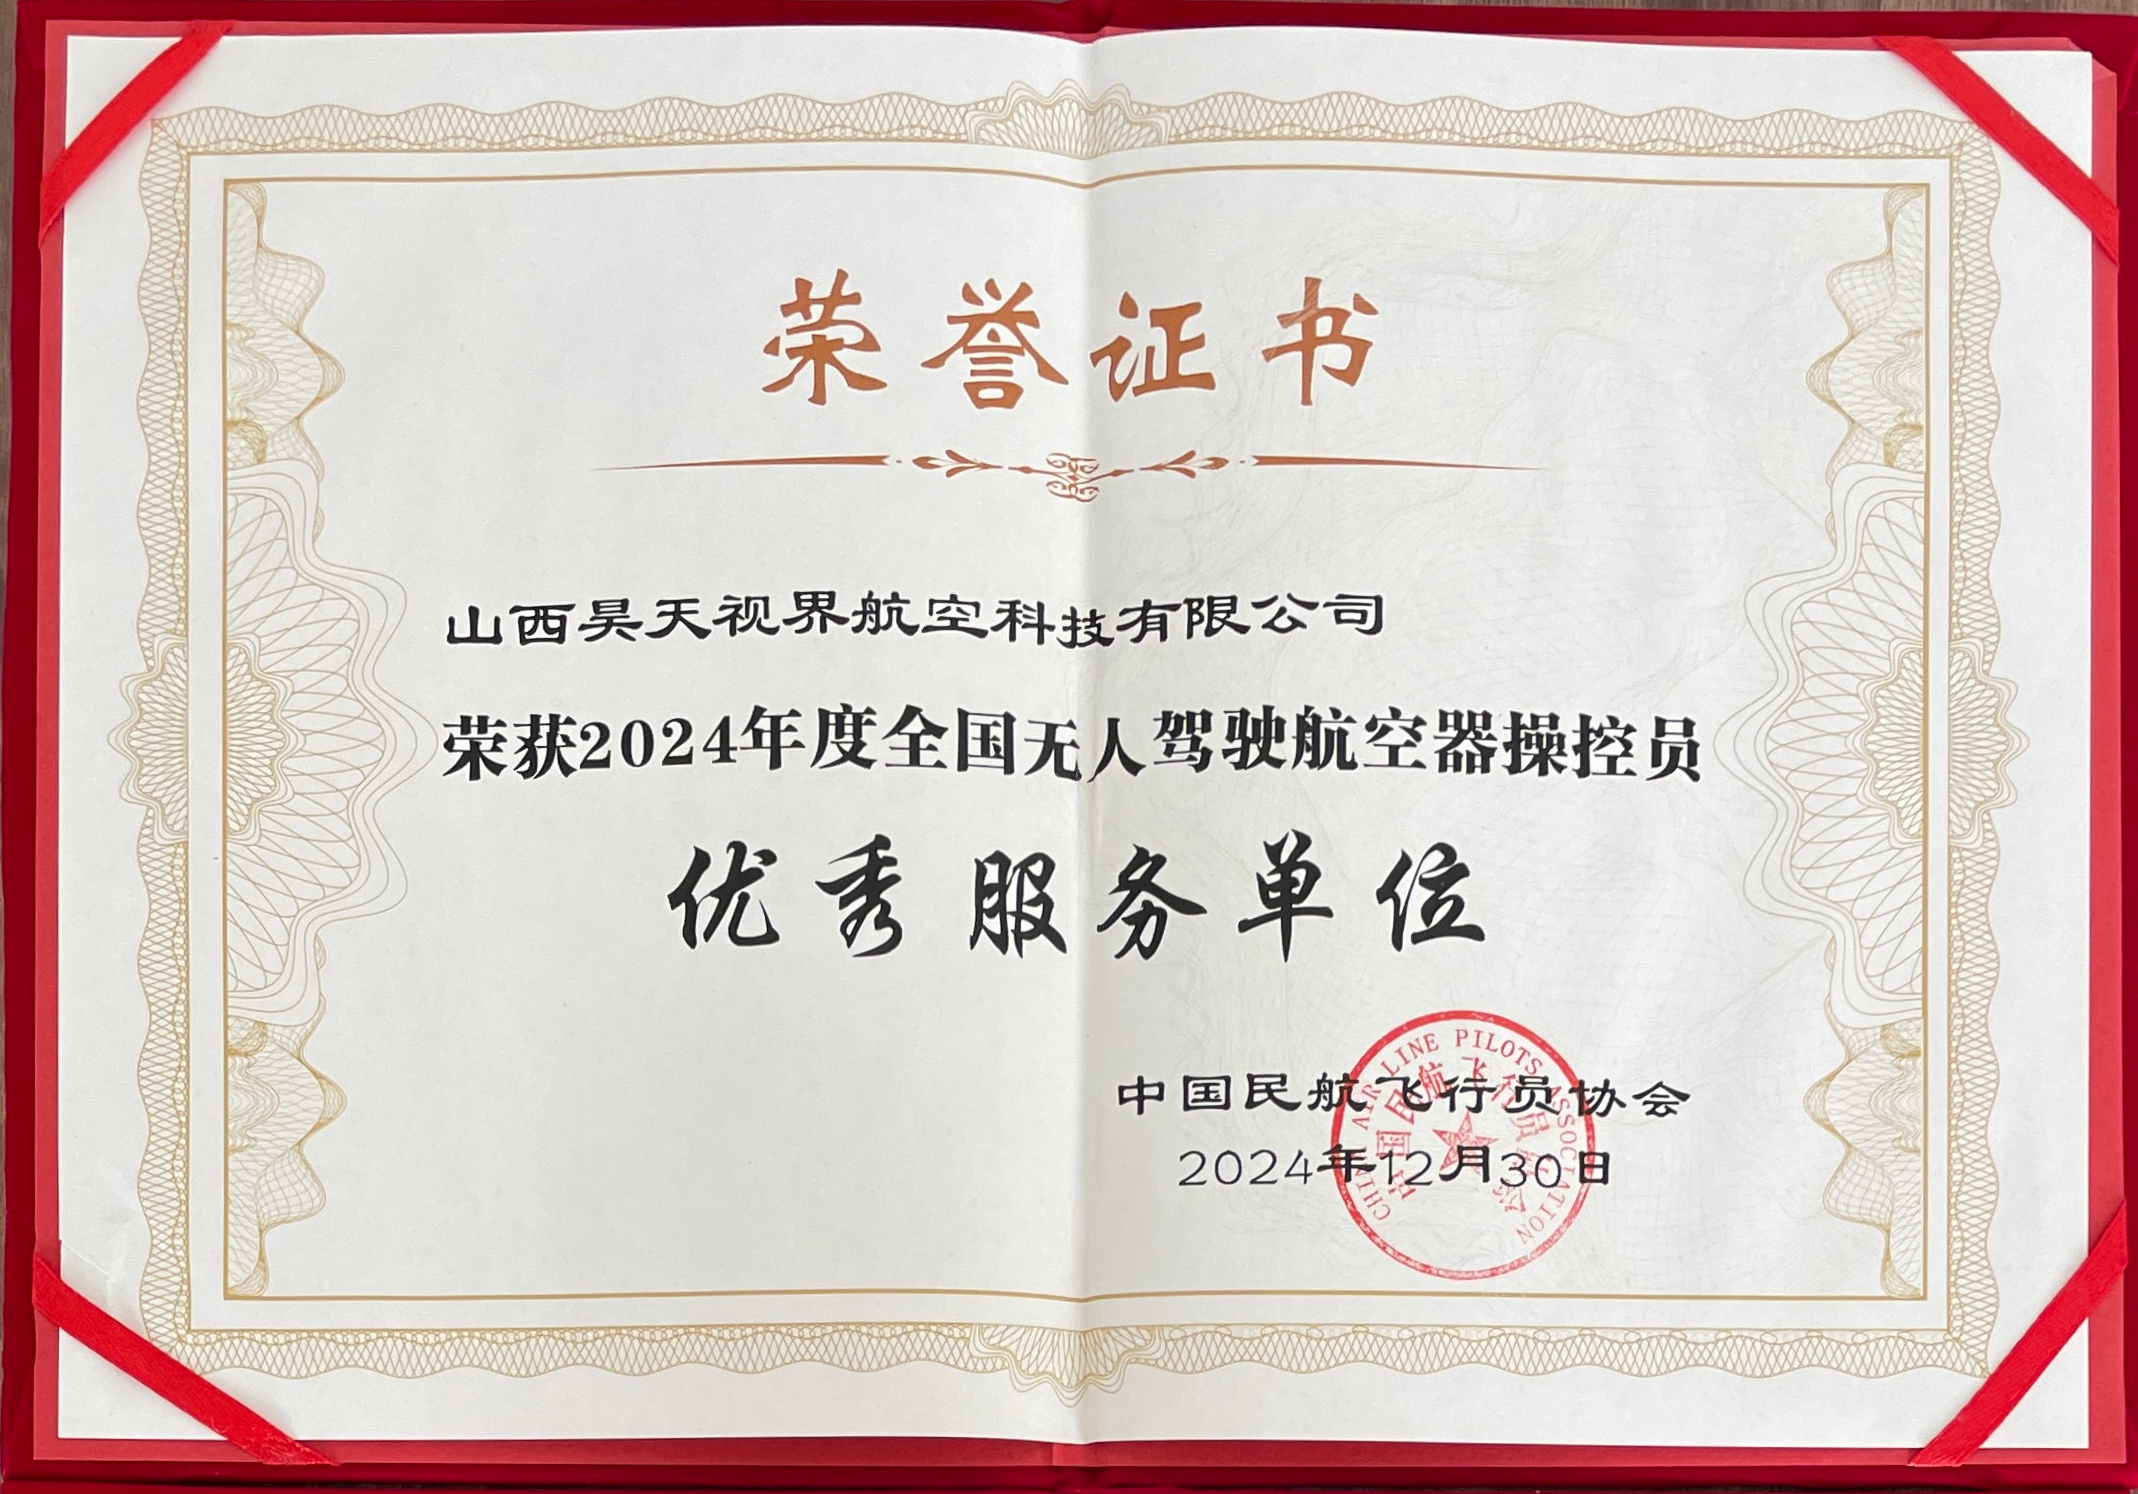 荣誉证书
山西昊天视界航空科技有限公司
荣获2024年度全国无人驾驶航空器操控员
优秀服务单位
中国民航飞行员协会
2024年12月30日
CHINA AIR LINE PILOTS ASSOCIATION
中国民航飞行员协会